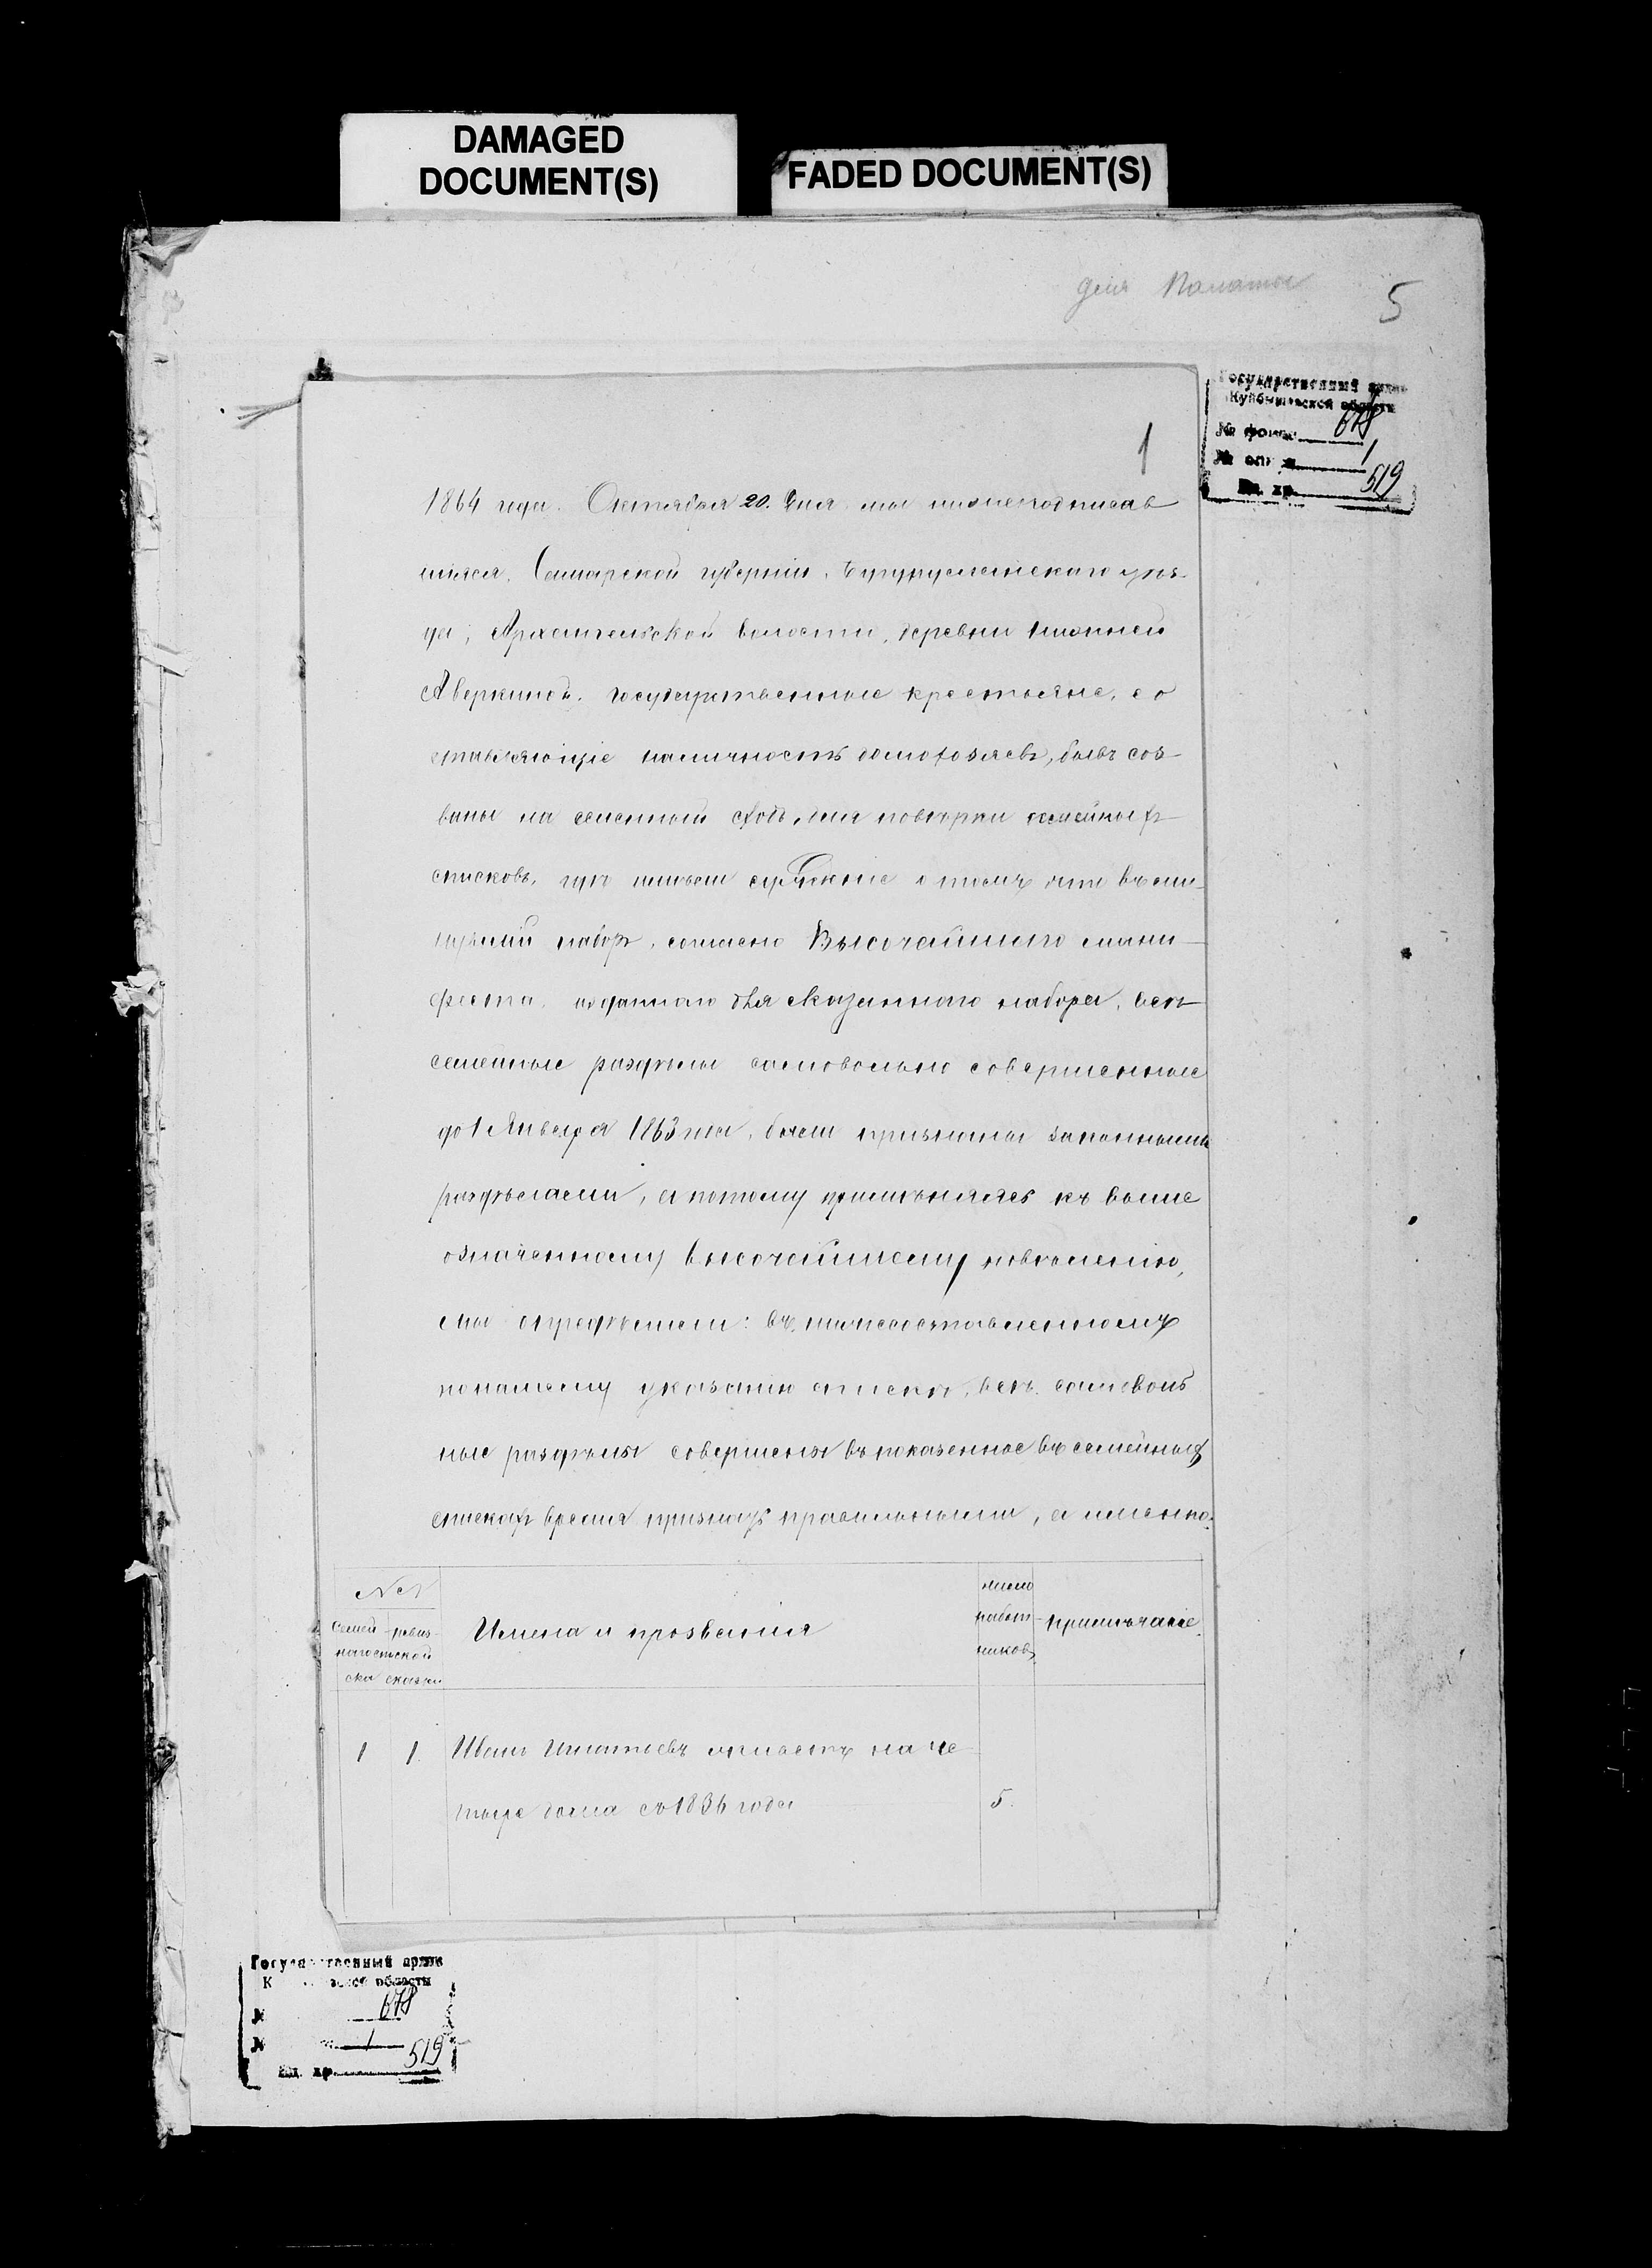 DAMAGED
DOCUMENT(S)
FADED DOCUMENT(S)
для Палаты
5
Государственный архив
Куйбышевской области
№ фонда 678
№ описи 1
Ед. хр. 519
1
1864 года. Октября 20. дня мы нижеподписав
шіяся, Самарской губерніи, Бугурусланскаго уѣз-
да, Архангельской волости, деревни Нижней
Аверкиной. государственные крестьяне, со
ставляющіе наличность домохозяевъ, бывъ соз-
ваны на сельскій сходъ, для повѣрки семейныхъ
списковъ, гдѣ имѣли сужденіе о томъ что въ
набор, согласно Высочайшаго мани-
феста изданнаго для сказаннаго набора, всѣ
семейные раздѣлы самовольно совершенные
до 1 Января 1863 года, были признаны законными
раздѣлами, а потому примѣняясь къ выше
означенному Высочайшему повелѣнію,
мы опредѣлили: въ нижесоставленному
по нашему указанію списки, всѣ самоволь
ные раздѣлы совершены въ показанное въ семейныхъ
спискахъ время признать правильными, а именно:
№№
семей ревиз-
наго спи ской
ска сказки
Имена и прозванія
число
работ-
никовъ
примѣчаніе.
1 1. Иванъ Игнатьевъ на че
тыре дома съ 1836 года 5.
Государственный архив
К обл области
№ 678
№ 1
Ед. хр. 519